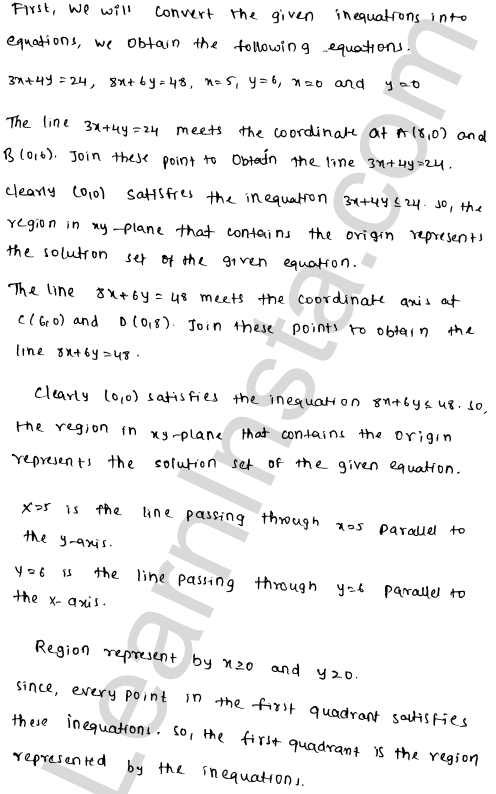 First, we will convert the given inequations into
equations, we obtain the following equations.
3x+4y = 24, 8x+6y=48, x=5, y=6, x=0 and y=0
The line 3x+4y=24 meets the coordinate at A(8,0) and
B(0,6). Join these point to obtain the line 3x+4y=24.
Clearly (0,0) satisfies the inequation 3x+4y≤24. so, the
region in xy-plane that contains the origin represents
the solution set of the given equation.
The line 8x+6y = 48 meets the coordinate axis at
C(6,0) and D(0,8). Join these points to obtain the
line 8x+6y=48.
Clearly (0,0) satisfies the inequation 8x+6y≤48. so,
the region in xy-plane that contains the origin
represents the solution set of the given equation.
x=5 is the line passing through x=5 parallel to
the y-axis.
y=6 is the line passing through y=6 parallel to
the x-axis.
Region represent by x≥0 and y≥0.
since, every point in the first quadrant satisfies
these inequations. so, the first quadrant is the region
represented by the inequations.
LearnInsta.com